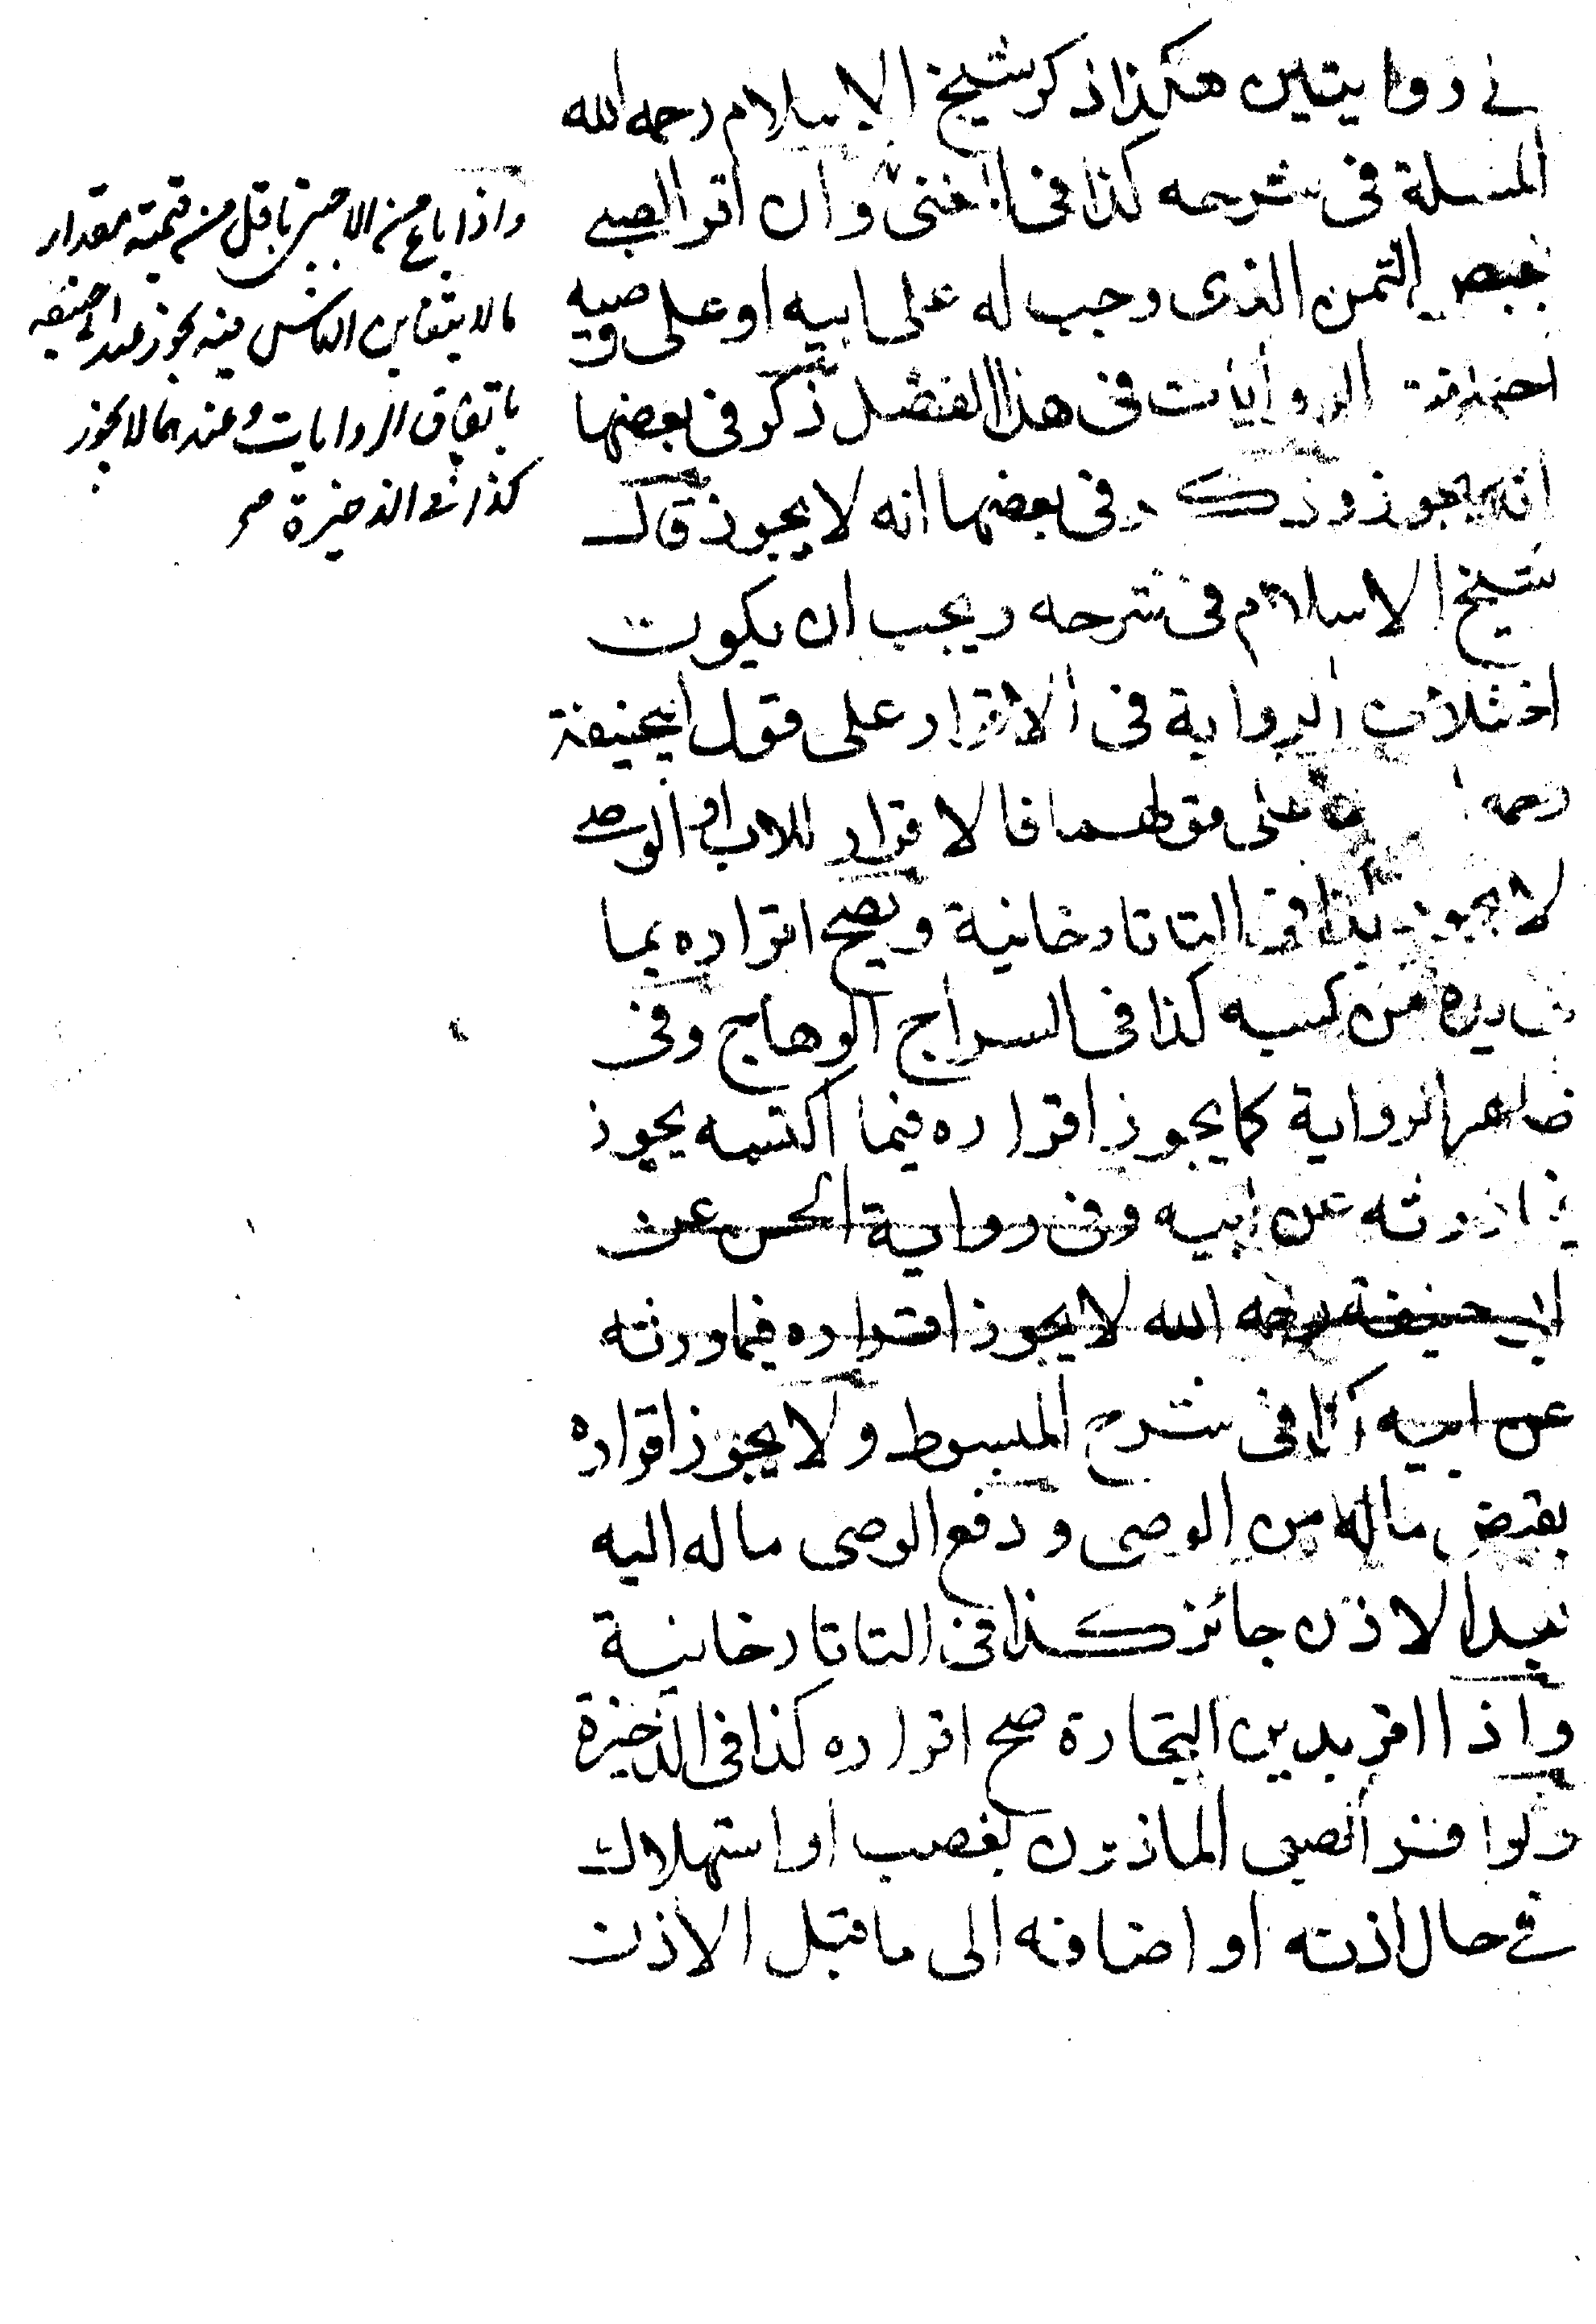 في روايتين هكذا ذكر شيخ الاسلام رحمه الله
المسلة فى شرحه كذا فى المغنى وان اقر الصبى
بقبض الثمن الذى وجب له على ابيه او على وصيه
اختلفت الروايات فى هذا الفصل ذكر فى بعضها
انه يجوز وذكر فى بعضها انه لا يجوز قال
شيخ الاسلام فى شرحه ويجب ان يكون
اختلاف الرواية فى الاقرار على قول ابيحنيفة
رحمه على قولهما فالاقرار للاب او الوصى
لا يجوز كذا فى التاتارخانية ويصح اقراره بما
فى يده من كسبه كذا فى السراج الوهاج وفى
ظاهر الرواية كما يجوز اقراره فيما اكتسبه يجوز
فيما ورثه عن ابيه وفى رواية الحسن عن
ابى حنيفة رحمه الله لا يجوز اقراره فيما ورثه
عن ابيه كذا فى شرح المبسوط ولا يجوز اقراره
بقبض ماله من الوصى ودفع الوصى ماله اليه
بعد الاذن جائز كذا فى التاتارخانية
واذا اقر بدين التجارة صح اقراره كذا فى الذخيرة
ولو اقر الصبى الماذون بغصب او استهلاك
في حال اذنه او اضافه الى ما قبل الاذن
واذا باع من الاجنبى باقل من قيمته مقدار
ما لا يتغابن الناس فيه يجوز عند ابى حنيفه
باتفاق الروايات وعندهما لا يجوز
كذا فى الذخيرة صح